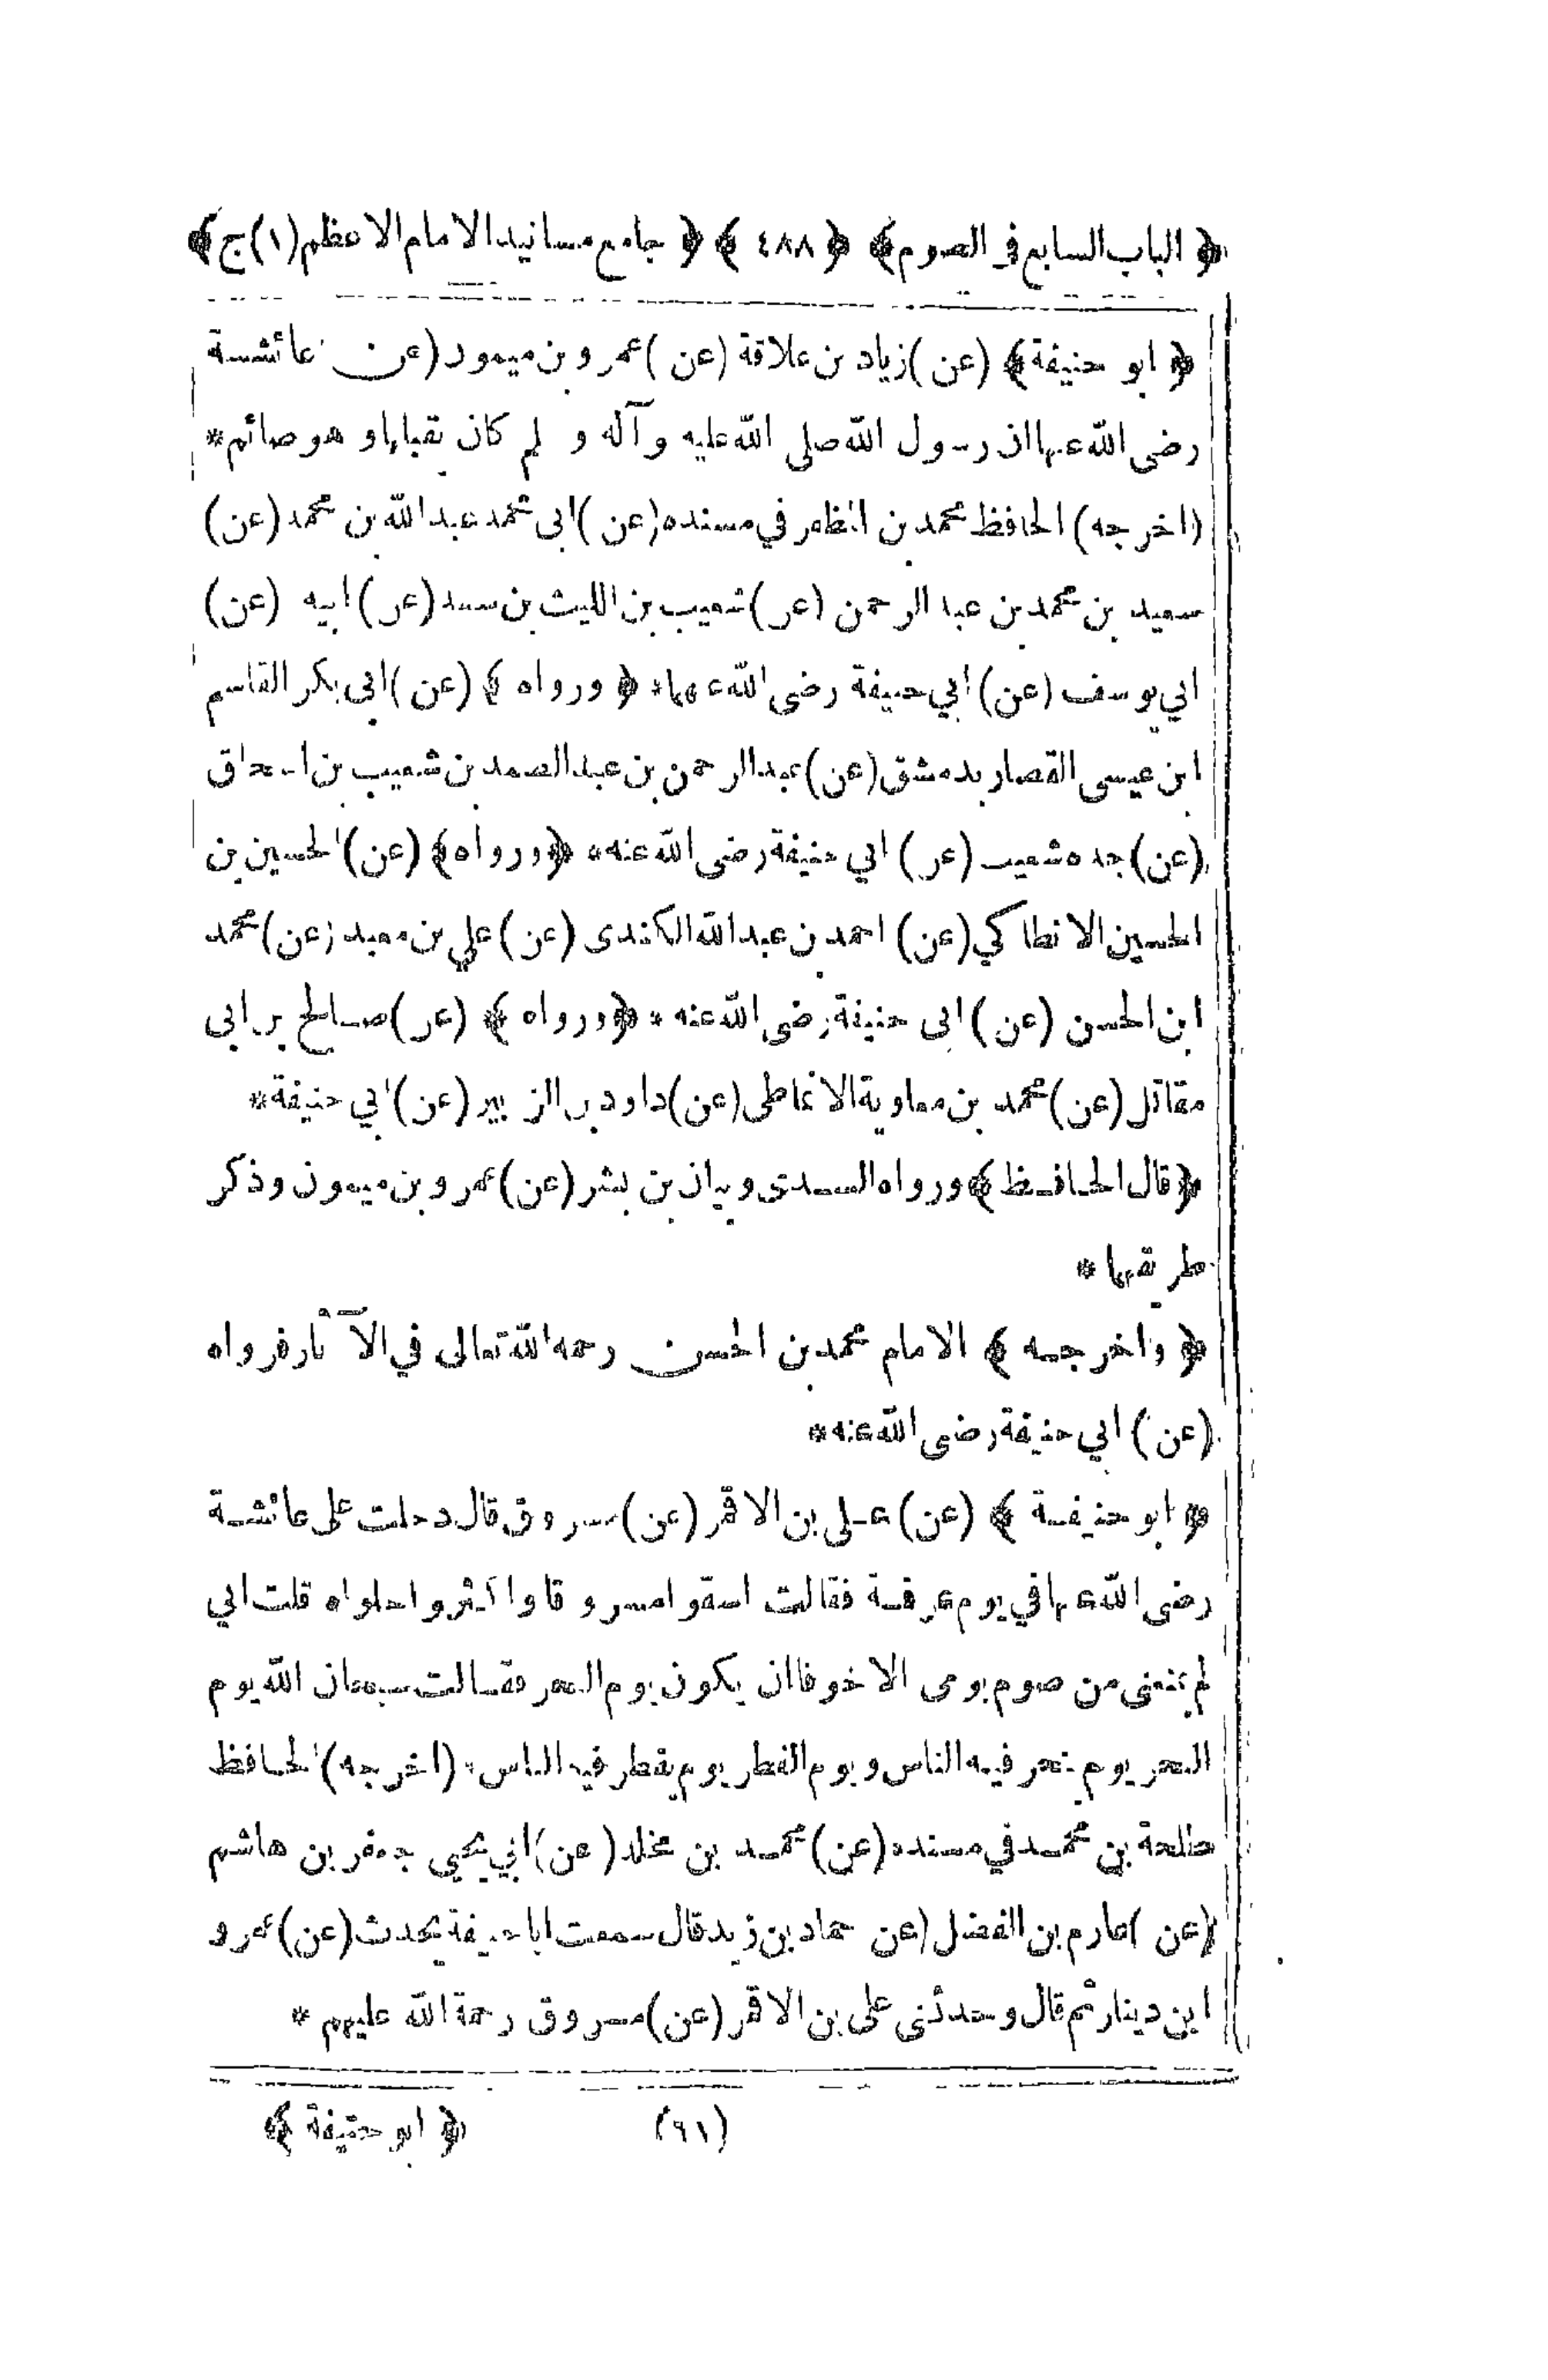 ﴿ الباب السابع في الصوم ﴾ ﴿ ٤٨٨ ﴾ ﴿ جامع مسانيد الامام الاعظم (١) ج ﴾
﴿ ابو حنيفة ﴾ (عن) زياد بن علاقة (عن) عمرو بن ميمون (عن عائشة
رضى الله عنها ان رسول الله صلى الله عليه وآله و لم كان يقبلها وهو صائم *
(اخرجه) الحافظ محمد بن المظفر في مسنده (عن) ابى محمد عبد الله بن محمد (عن)
سعيد بن محمد بن عبد الرحمن (عن) شعيب بن الليث بن سعد (عن) ابيه (عن)
ابي يوسف (عن) ابي حنيفة رضى الله عنهما * ﴿ ورواه ﴾ (عن) ابى بكر القاسم
ابن عيسى القصار بدمشق (عن) عبد الرحمن بن عبد الصمد بن شعيب بن اسحاق
(عن) جده شعيب (عن) ابي حنيفة رضى الله عنه * ﴿ ورواه ﴾ (عن) الحسين بن
الحسين الانطاكي (عن) احمد بن عبد الله الكندى (عن) علي بن معبد (عن) محمد
ابن الحسن (عن) ابى حنيفة رضى الله عنه * ﴿ ورواه ﴾ (عن) صالح بن ابى
مقاتل (عن) محمد بن معاوية الانماطى (عن) داود بن الزبير (عن) ابي حنيفة *
﴿ قال الحافظ ﴾ ورواه السدى وبيان بن بشر (عن) عمرو بن ميمون وذكر
طريقها *
﴿ واخرجه ﴾ الامام محمد بن الحسن رحمه الله تعالى في الآثار فرواه
(عن) ابي حنيفة رضى الله عنه *
﴿ ابو حنيفة ﴾ (عن) على بن الاقمر (عن) مسروق قال دخلت على عائشة
رضى الله عنها في يوم عرفة فقالت اسقوا مسروقا واكثروا حلواه قلت انى
لم يمنعنى من صوم يومى الا خوفا ان يكون يوم النحر فقالت سبحان الله يوم
النحر يوم ينحر فيه الناس ويوم الفطر يوم يفطر فيه الناس * (اخرجه) الحافظ
طلحة بن محمد في مسنده (عن) محمد بن مخلد (عن) ابي يحيى جعفر بن هاشم
(عن) عارم بن الفضل (عن حماد بن زيد قال سمعت ابا حنيفة يحدث (عن) عمرو
ابن دينار ثم قال وحدثنى على بن الاقمر (عن) مسروق رحمة الله عليهم *
(٦١) ﴿ ابو حنيفة ﴾